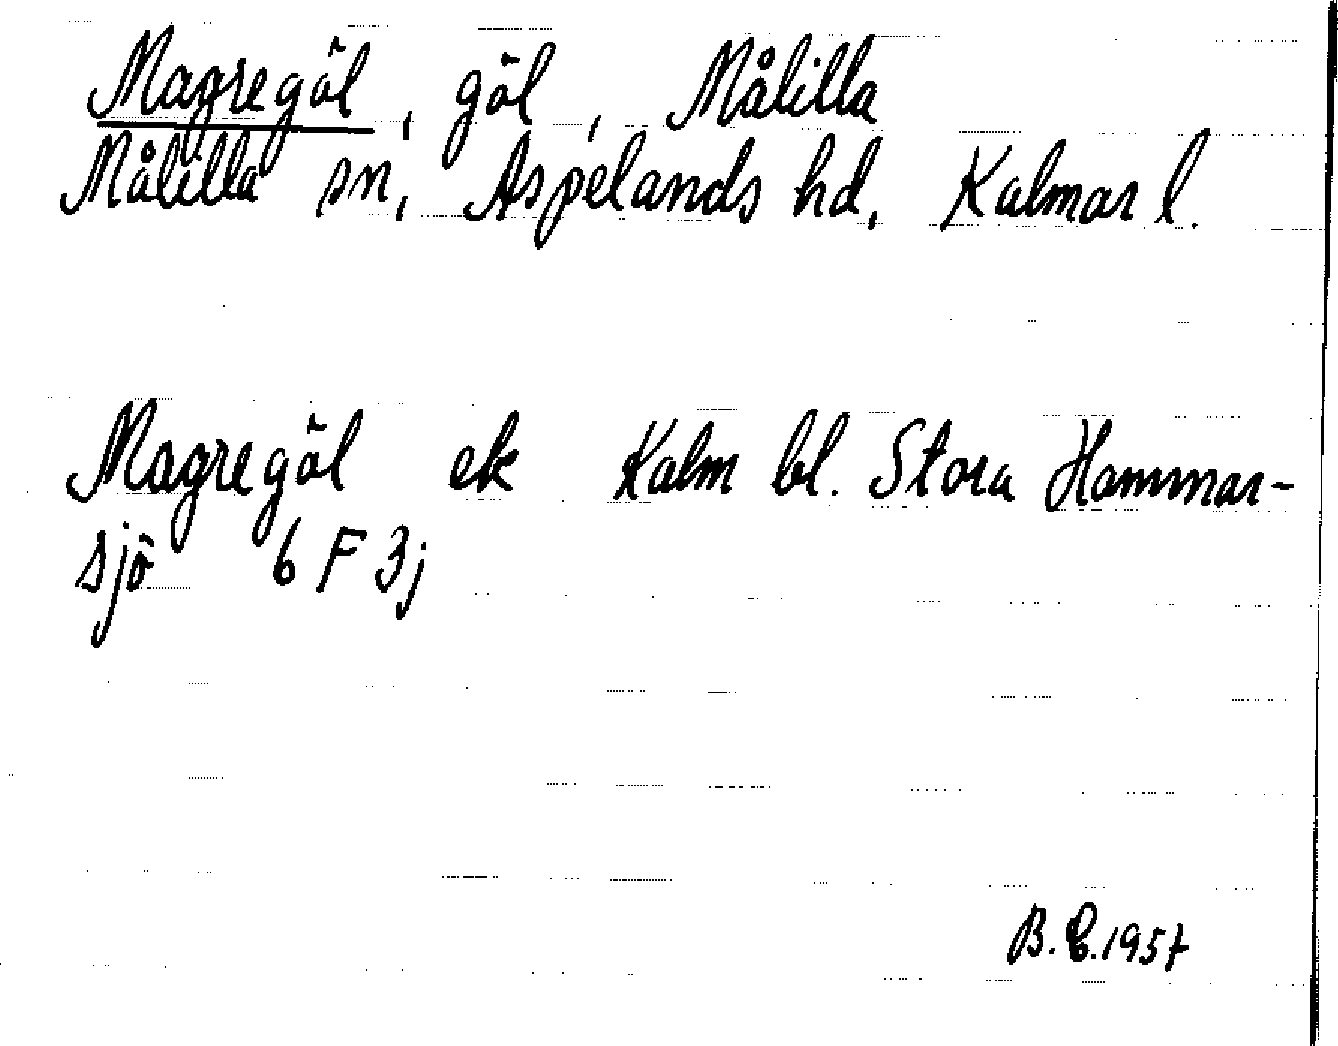 Magregöl, göl, Målilla
Målilla sn, Aspelands hd, Kalmar l.
Magregöl ek Kalm bl. Stora Hammar-
sjö 6 F 3j
B. E. 1957